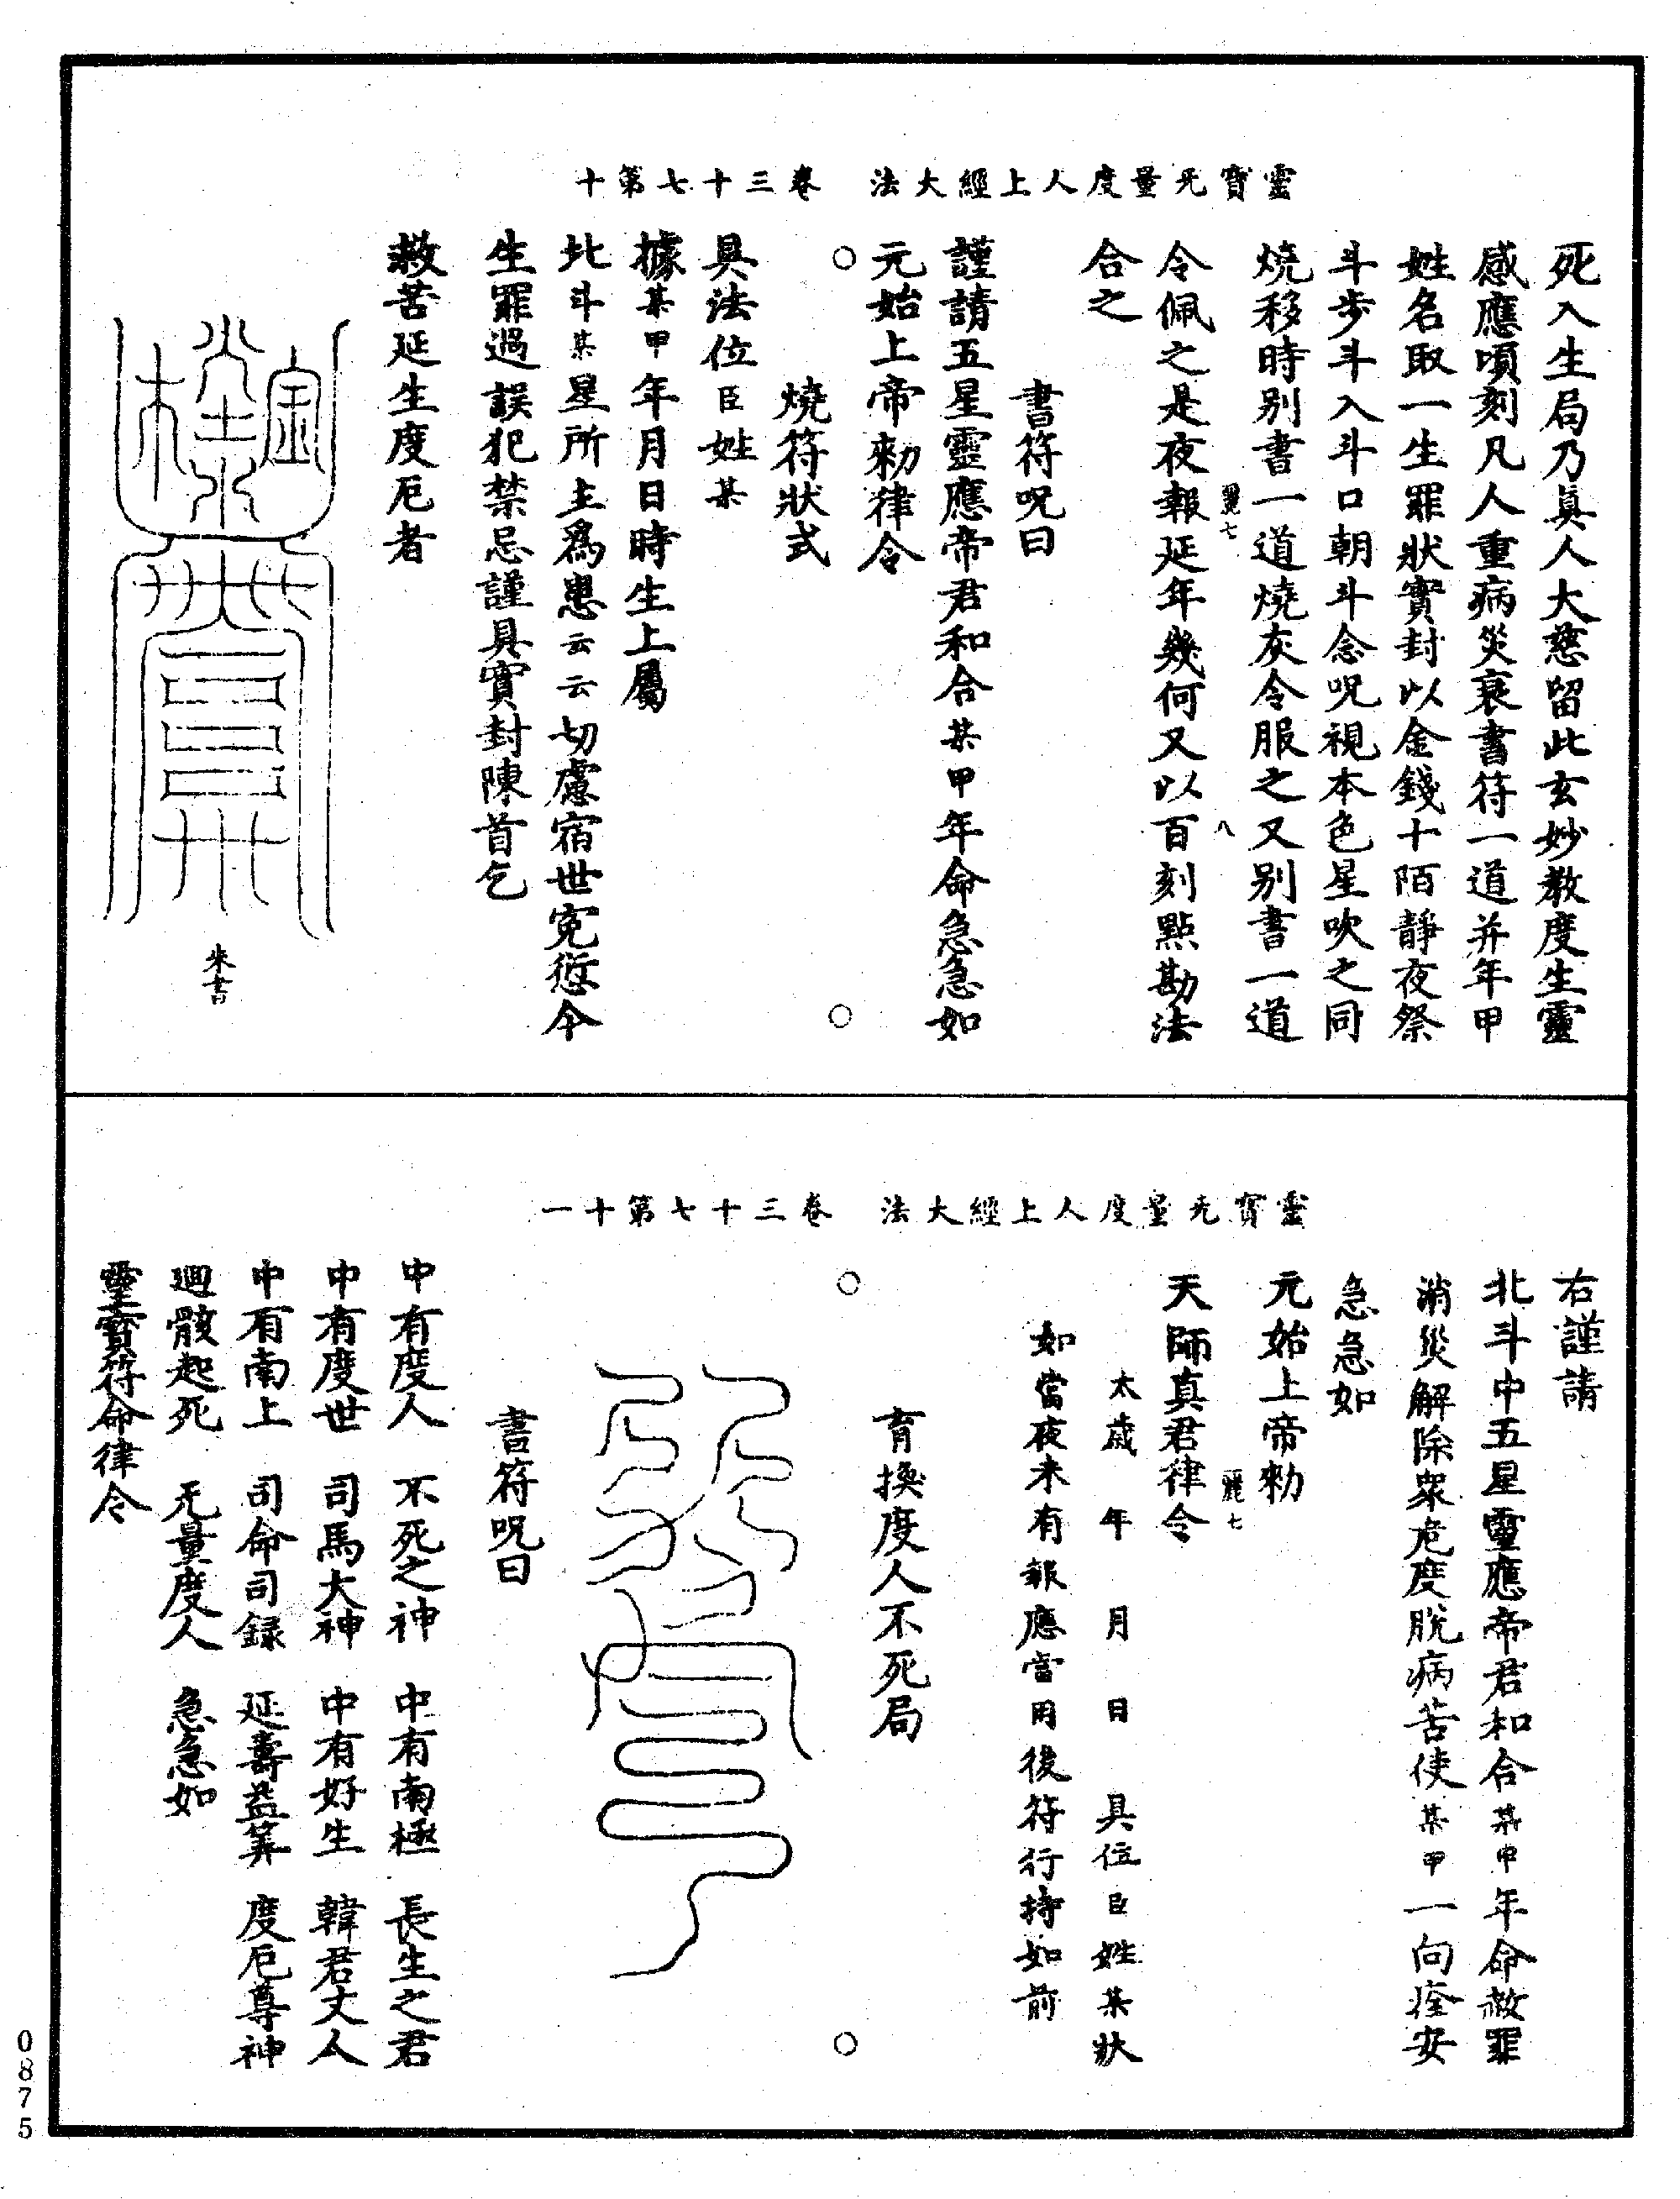 靈寶无量度人上經大法　卷三十七第十
死入生局乃眞人大慈留此玄妙教度生靈
感應頃刻凡人重病災衰書符一道并年甲
姓名取一生罪狀實封以金錢十陌靜夜祭
斗步斗入斗口朝斗念呪視本色星吹之同
燒移時別書一道燒灰令服之又別書一道
八
令佩之是夜報延年幾何又以百刻點勘法
合之
書符呪曰
謹請五星靈應帝君和合某甲年命急急如
元始上帝勑律令
○　○
燒符狀式
具法位臣姓某
據某甲年月日時生上屬
北斗某星所主爲患云云切慮宿世寃愆今
生罪過誤犯禁忌謹具實封陳首乞
救苦延生度厄者
朱書
靈寶无量度人上經大法　卷三十七第十一
右謹請
北斗中五星靈應帝君和合某甲年命赦罪
消災解除衆危度脫病苦使某甲一向痊安
急急如
元始上帝勑
天師真君律令
太歲　年　月　日　具位臣姓某狀
如當夜未有報應當用後符行持如前
育換度人不死局
○　○
書符呪曰
中有度人　不死之神　中有南極　長生之君
中有度世　司馬大神　中有好生　韓君丈人
中有南上　司命司録　延壽益筭　度厄尊神
廻骸起死　无量度人　急急如
靈寶符命律令
0875